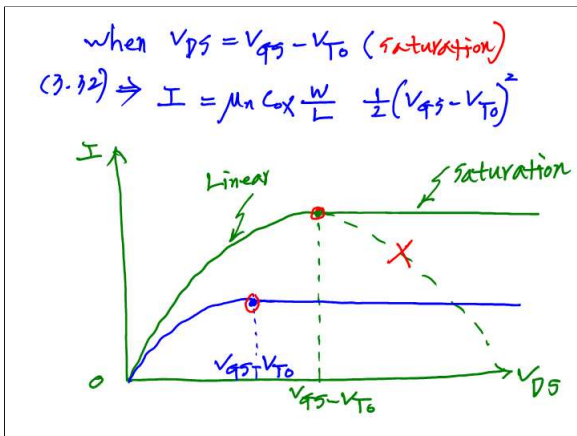 when V_DS = V_GS - V_T0 (saturation)
(3.32) ⇒ I = μ_n C_ox W/L 1/2 (V_GS - V_T0)²
I
Linear
saturation
X
0
V_GS - V_T0
V_GS - V_T0
V_DS